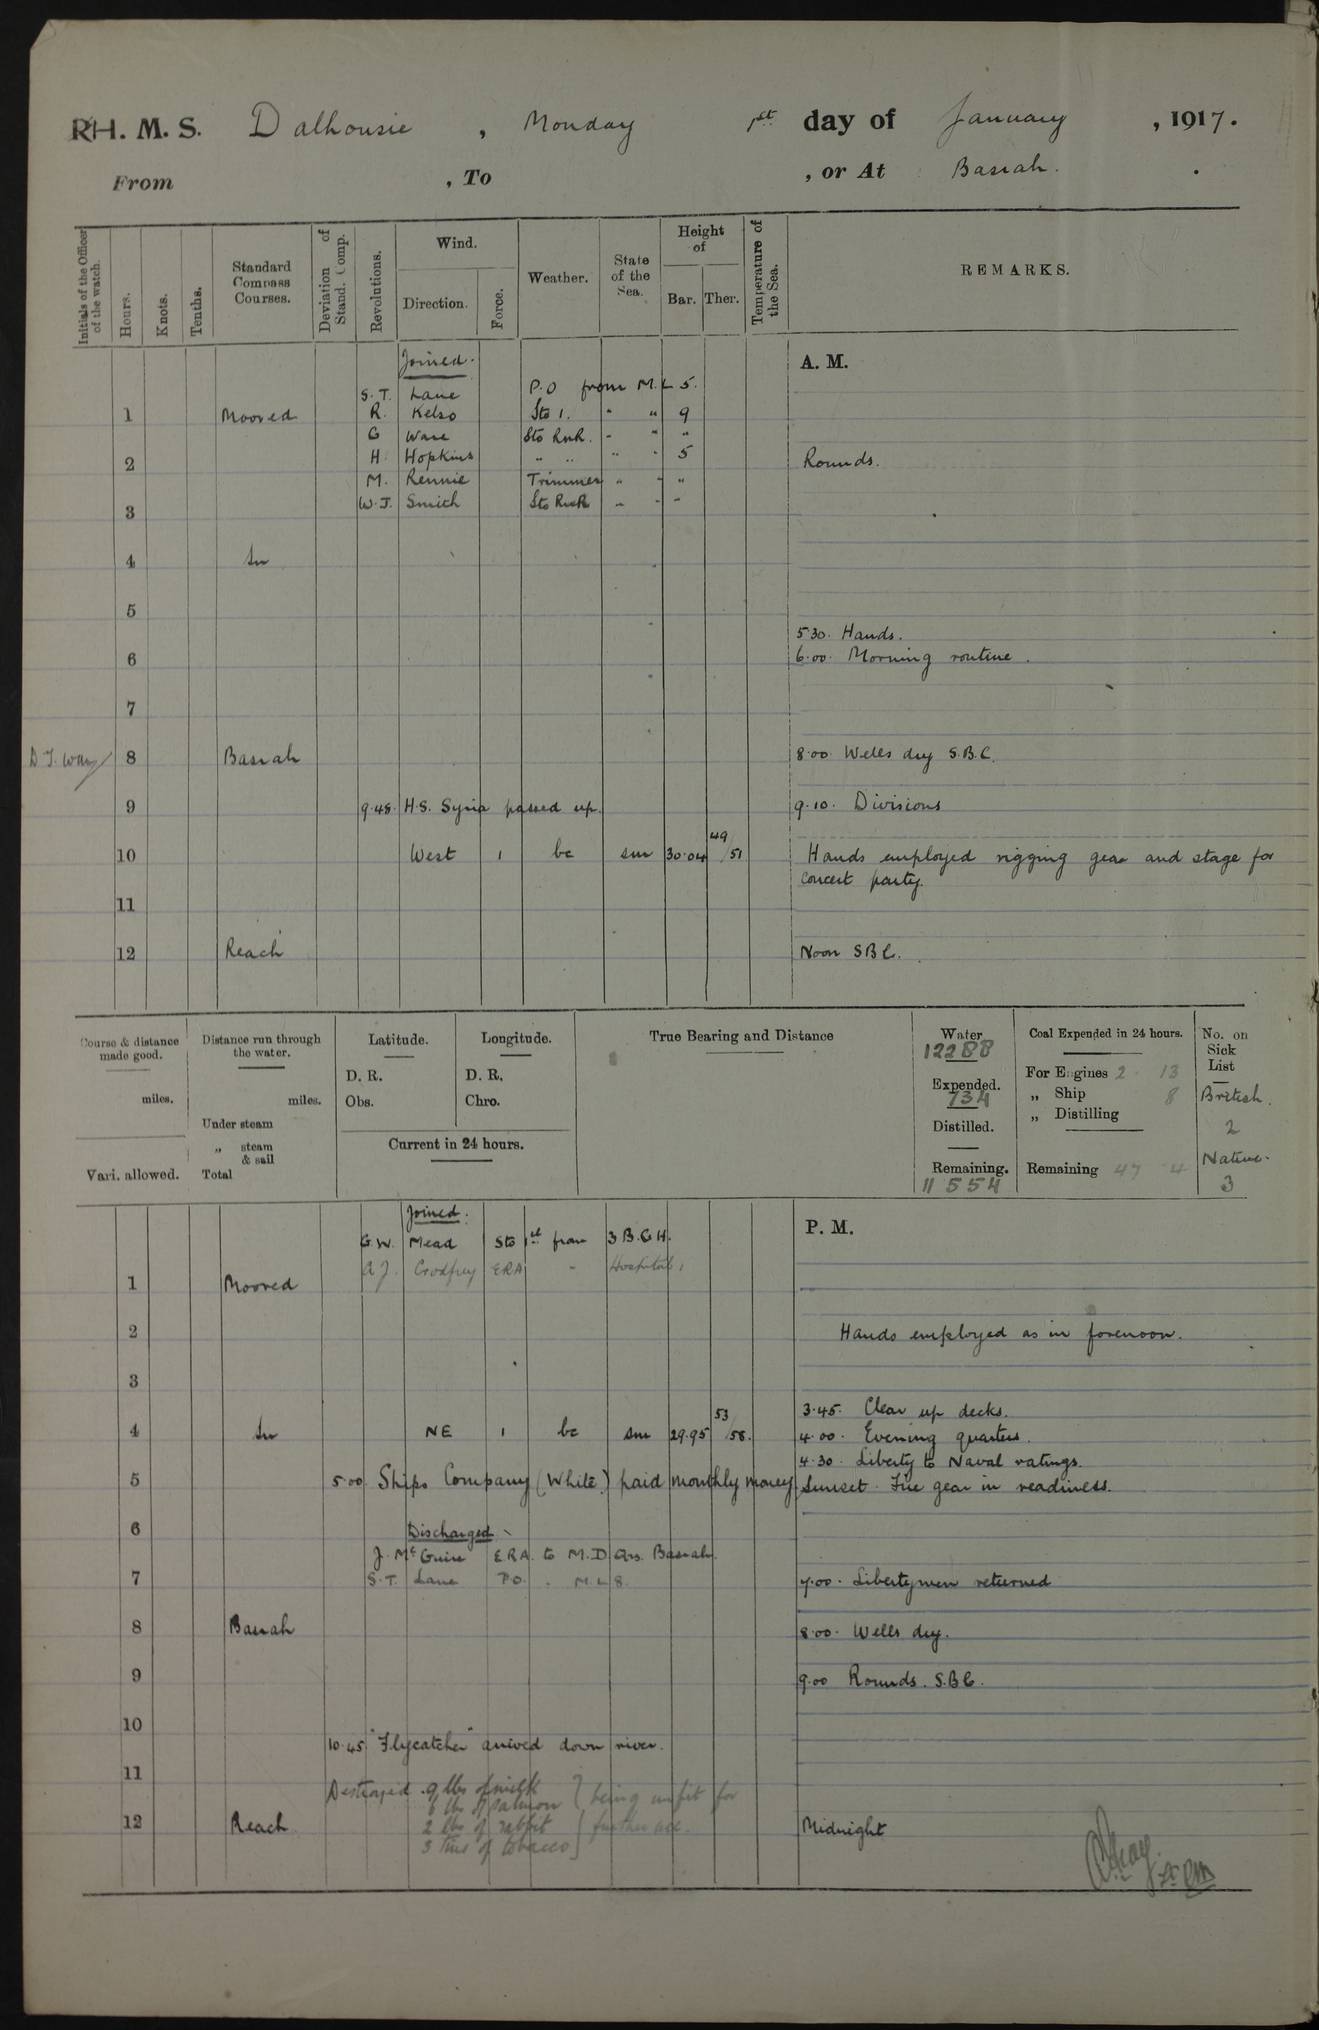 R.H. M. S. Dalhousie , Monday 1st day of January , 1917.
From , To , or At Basrah .
Initials of the Officer of the watch. Hours. Knots. Tenths. Standard Compass Courses. Deviation of Stand. Comp. Revolutions. Wind. Direction. Force. Weather. State of the Sea. Height of Bar. Ther. Temperature of the Sea. REMARKS.
Joined. A. M.
S.T. Lane P.O from M.L 5.
1 Moored R. Kelso Sto 1. " " 9
G Ware Sto RNR. " " "
2 H. Hopkins " " " " 5 Rounds.
M. Rennie Trimmer " " "
3 W.J. Smith Sto RNR " " "
4 In
5
5.30. Hands.
6 6.00. Morning routine.
7
8 Basrah 8.00 Wells dry S.B.C.
9 9.48. H.S. Syria passed up. 9.10. Divisions
10 West 1 bc sm 30.04 49/51 Hands employed rigging gear and stage for
concert party.
11
12 Reach Noon SBC.
Course & distance made good. miles. Vari. allowed.
Distance run through the water. miles. Under steam „ steam & sail Total
Latitude. D. R. Obs.
Longitude. D. R. Chro.
Current in 24 hours.
True Bearing and Distance
Water 12288 Expended. 734 Distilled. Remaining. 11554
Coal Expended in 24 hours. For Engines 2 13 „ Ship 8 „ Distilling Remaining 47 4
No. on Sick List British. 2 Native. 3
Joined. P. M.
G.W. Mead Sto 1st from 3 B.G.H.
A J. Godfrey ERA " Hospital.
1 Moored
2 Hands employed as in forenoon.
3
3.45. Clear up decks.
4 In NE 1 bc sm 29.95 53/58. 4.00. Evening quarters.
4.30. Liberty to Naval ratings.
5 5.00 Ships Company (White) paid monthly money Sunset. Fire gear in readiness.
6 Discharged
J. McGuire E.R.A. to M.D. Qrs. Basrah.
7 S.T. Lane P.O. " M.L 8. 7.00. Libertymen returned
8 Basrah 8.00. Wells dry.
9 9.00 Rounds. S.B.C.
10
10.45 "Flycatcher" arrived down river.
11
Destroyed 9 lbs of milk
6 lbs of salmon being unfit for
12 Reach 2 lbs of rabbit further use. Midnight
3 tins of tobacco